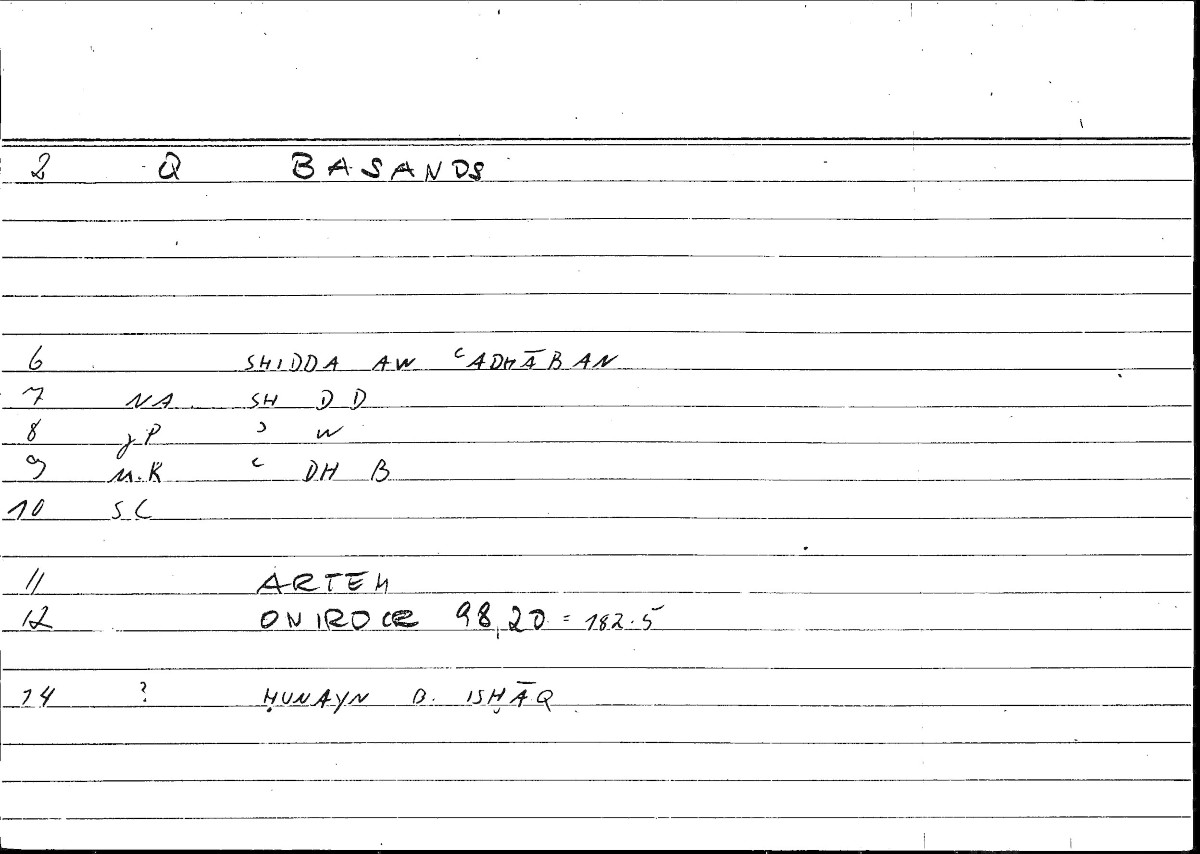 2 Q BASANOS
6 SHIDDA AW ʿADHĀBAN
7 NA. SH D D
8 gP ʾ W
9 n.K ʿ DH B
10 SC
11 ARTEM
12 ONIROCR 98,20 = 182.5
14 ? ḤUNAYN B. ISḤĀQ